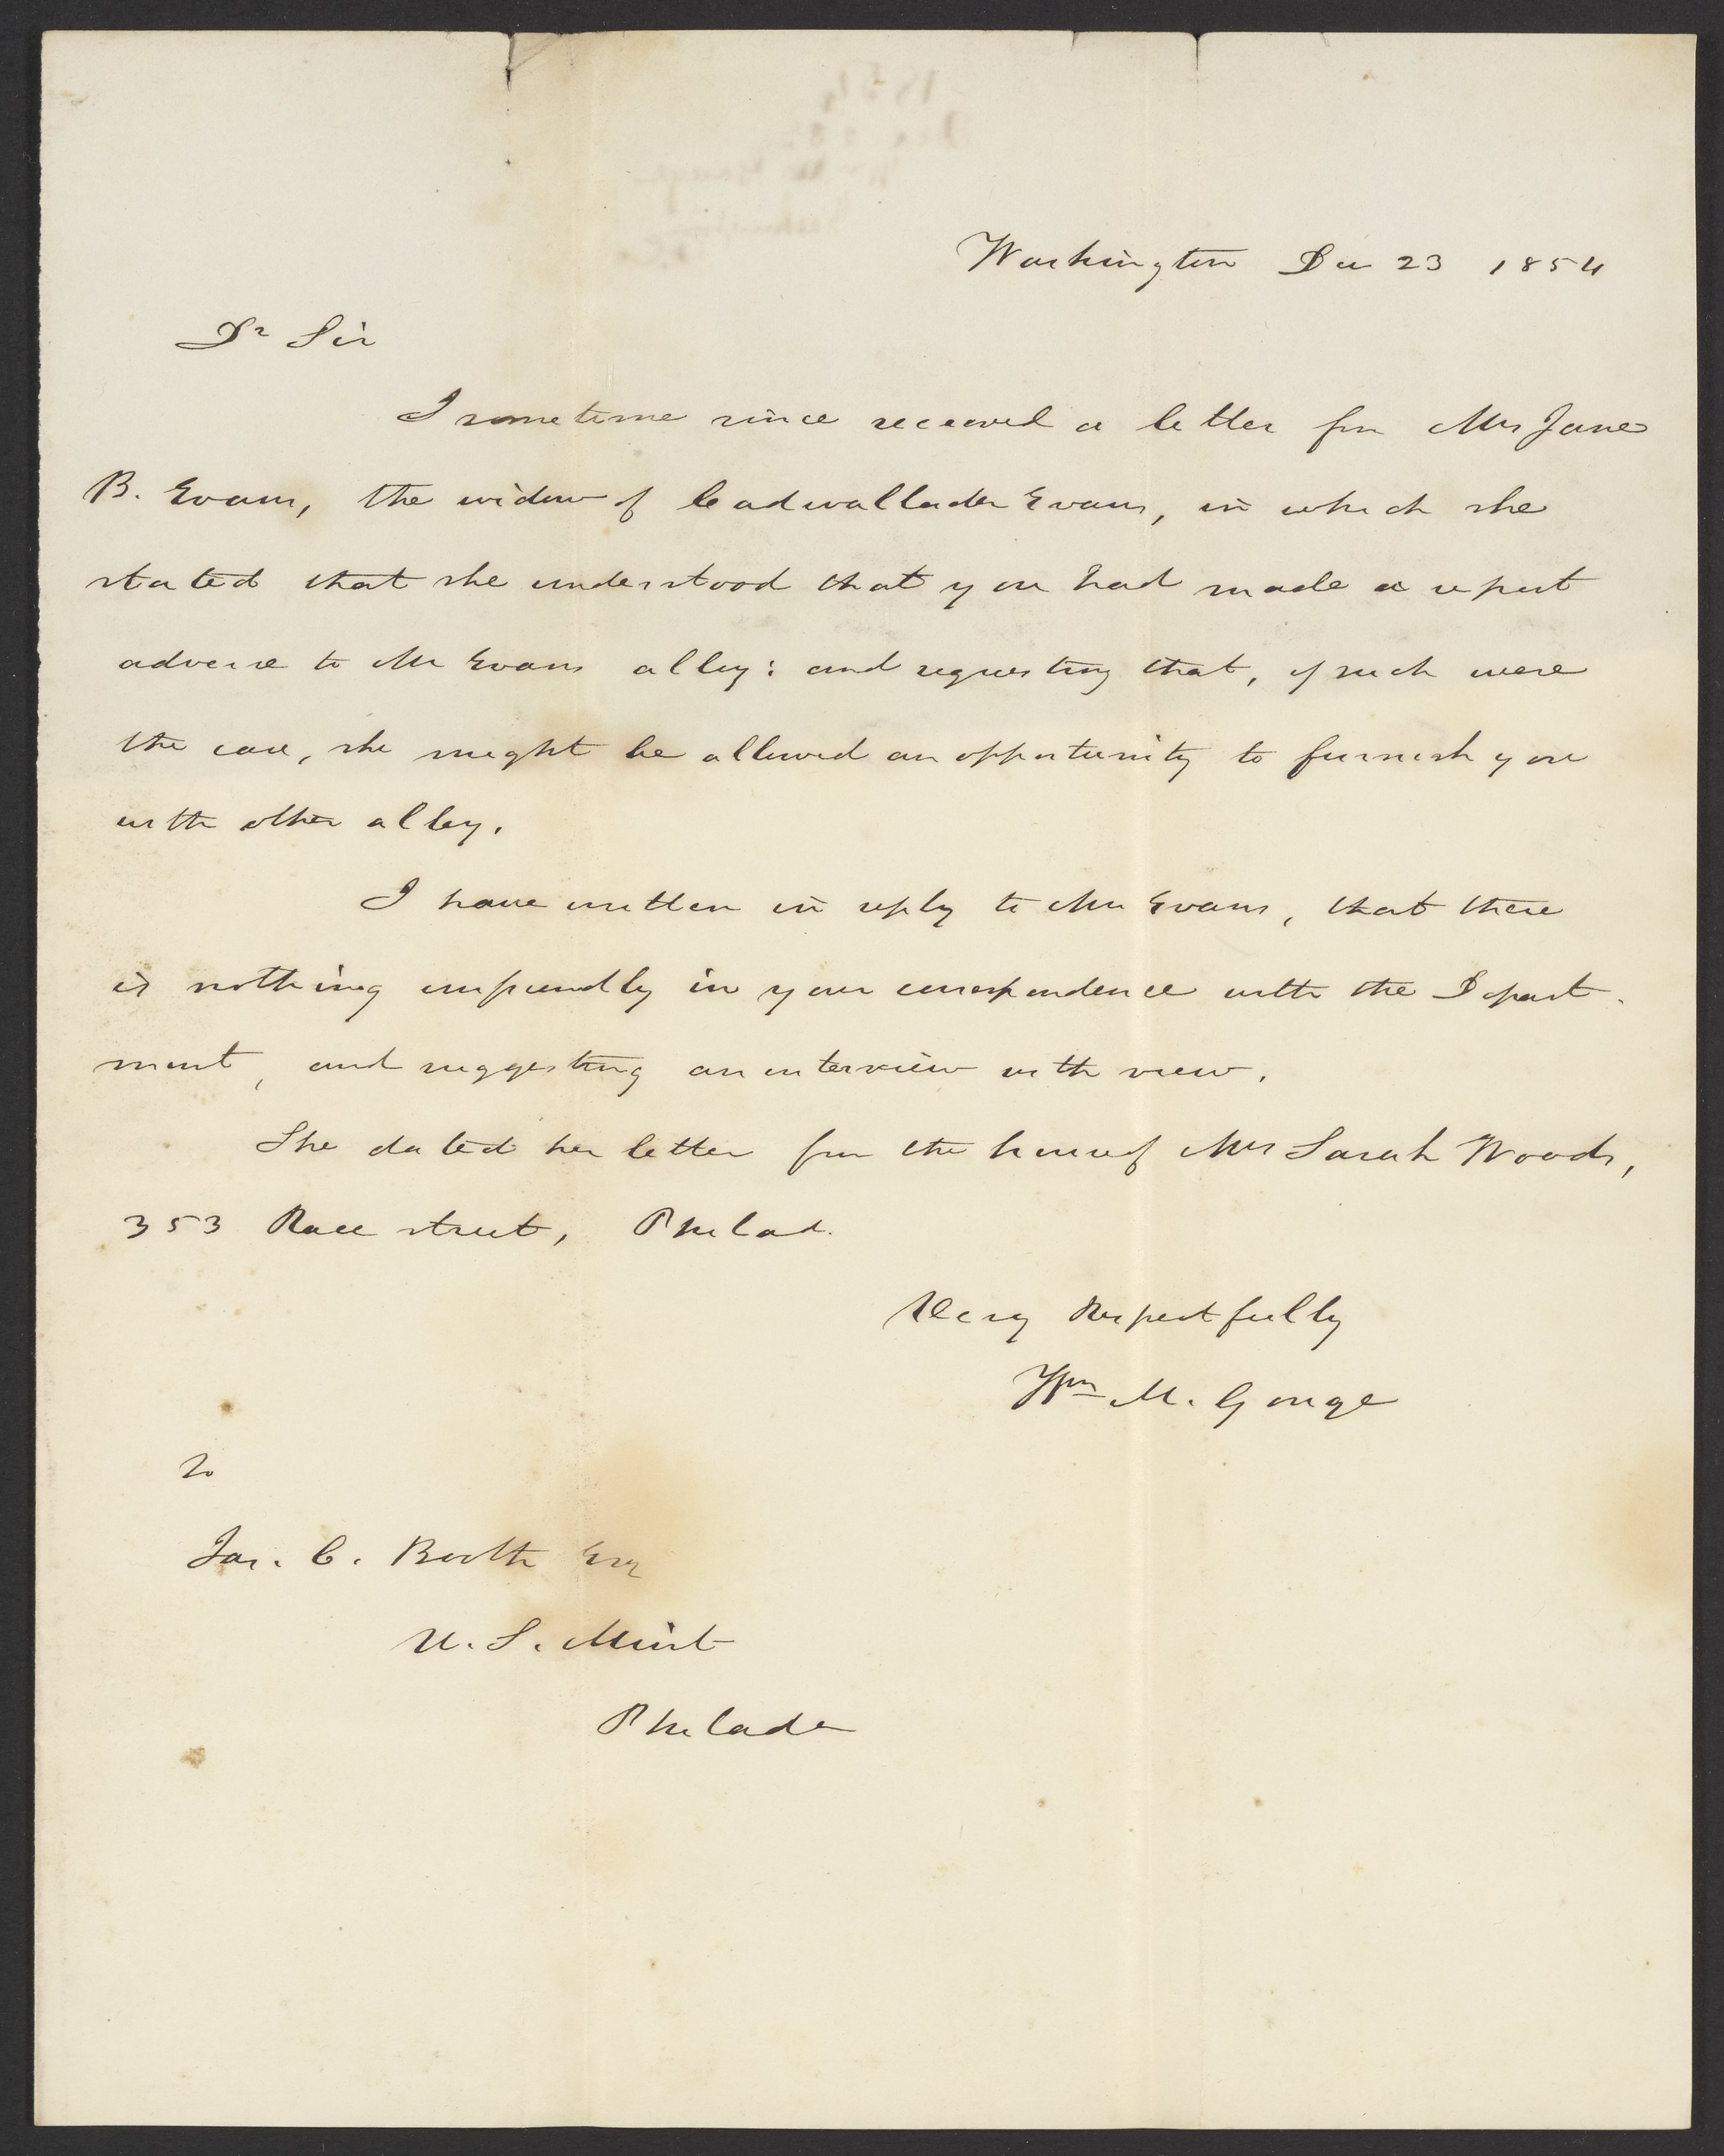 Washington Dec 23 1854
Dr Sir
I sometime since received a letter from Mrs Jane
B. Evans, the widow of Cadwallader Evans, in which she
stated that she understood that you had made a report
adverse to Mr Evans alloy; and requesting that, if such were
the case, she might be allowed an opportunity to furnish you
with other alloy.
I have written in reply to Mrs Evans, that there
is nothing unfriendly in your correspondence with the Depart-
ment, and suggesting an interview with view.
She dated her letter from the house of Mrs Sarah Woods,
353 Race street, Philad.
Very Respectfully
Wm M. Gouge
To
Jas. C. Booth Esq
U.S. Mint
Philada